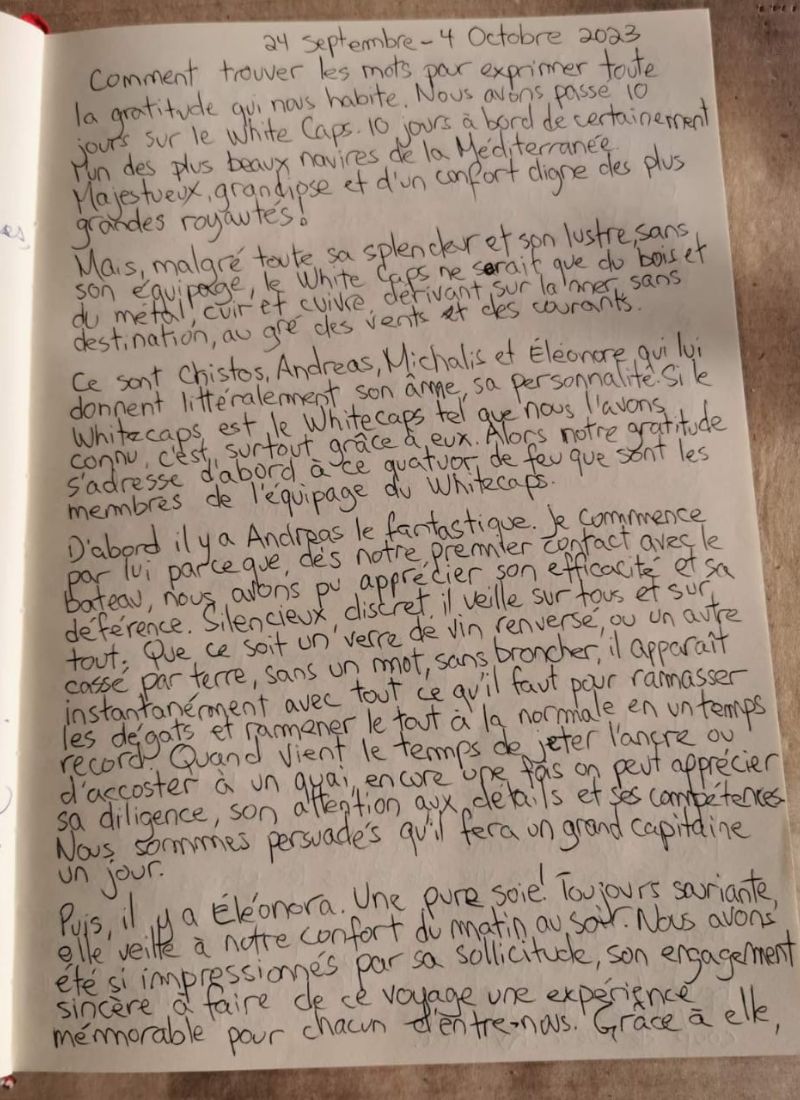 24 Septembre - 4 Octobre 2023
Comment trouver les mots pour exprimer toute
la gratitude qui nous habite. Nous avons passé 10
jours sur le White Caps. 10 jours à bord de certainement
l'un des plus beaux navires de la Méditerranée.
Majestueux, grandiose et d'un confort digne des plus
grandes royautés!
Mais, malgré toute sa splendeur et son lustre, sans
son équipage, le White Caps ne serait que du bois et
du métal, cuir et cuivre, dérivant sur la mer, sans
destination, au gré des vents et des courants.
Ce sont Chistos, Andreas, Michalis et Éléonore qui lui
donnent littéralement son âme, sa personnalité. Si le
Whitecaps est le Whitecaps tel que nous l'avons
connu, c'est surtout grâce à eux. Alors notre gratitude
s'adresse d'abord à ce quatuor de feu que sont les
membres de l'équipage du Whitecaps.
D'abord il y a Andreas le fantastique. Je commence
par lui parce que, dès notre premier contact avec le
bateau, nous avons pu apprécier son efficacité et sa
déférence. Silencieux, discret, il veille sur tous et sur
tout. Que ce soit un verre de vin renversé, ou un autre
cassé par terre, sans un mot, sans broncher, il apparaît
instantanément avec tout ce qu'il faut pour ramasser
les dégats et ramener le tout à la normale en un temps
record. Quand vient le temps de jeter l'ancre ou
d'accoster à un quai, encore une fois on peut apprécier
sa diligence, son attention aux détails et ses compétences.
Nous sommes persuadés qu'il fera un grand capitaine
un jour.
Puis, il y a Éléonora. Une pure soie! Toujours souriante,
elle veille à notre confort du matin au soir. Nous avons
été si impressionnés par sa sollicitude, son engagement
sincère à faire de ce voyage une expérience
mémorable pour chacun d'entre-nous. Grâce à elle,